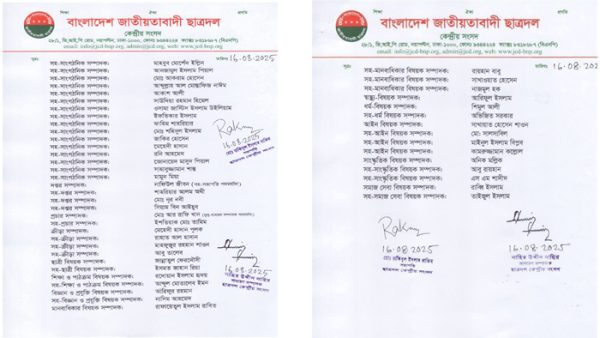 শিক্ষা ঐক্য প্রগতি
বাংলাদেশ জাতীয়তাবাদী ছাত্রদল
কেন্দ্রীয় সংসদ
২৮/১, ভি.আই.পি রোড, নয়াপল্টন, ঢাকা-১০০০
email: info@jcd-bnp.org, web: www.jcd-bnp.org
সূত্রঃ তারিখঃ 16-08-2025
সহ-সাংগঠনিক সম্পাদক: মাহবুব মোর্শেদ ইল্লিন
সহ-সাংগঠনিক সম্পাদক: আনজামুল ইসলাম পিয়াল
সহ-সাংগঠনিক সম্পাদক: মো: আকরাম হোসেন
সহ-সাংগঠনিক সম্পাদক: আব্দুল্লাহ আল মোস্তাফিজ নাঈম
সহ-সাংগঠনিক সম্পাদক: আকাশ আলী
সহ-সাংগঠনিক সম্পাদক: সাউদিয়া রহমান হিমেল
সহ-সাংগঠনিক সম্পাদক: ওসামা জাস্টিন ইসলাম উইলিয়াম
সহ-সাংগঠনিক সম্পাদক: ইফতিকার ইসলাম
সহ-সাংগঠনিক সম্পাদক: ফারিম শাহরিয়ার
সহ-সাংগঠনিক সম্পাদক: মোঃ শহিদুল ইসলাম
সহ-সাংগঠনিক সম্পাদক: জাকির হোসেন
সহ-সাংগঠনিক সম্পাদক: মেহেদী হাসান
সহ-সাংগঠনিক সম্পাদক: রবি আহমেদ
সহ-সাংগঠনিক সম্পাদক: জোনায়েদ মাসুদ পিয়াল
সহ-সাংগঠনিক সম্পাদক: সাহাবুদ্দামান শান্ত
সহ-সাংগঠনিক সম্পাদক: মামুন মিয়া
দপ্তর সম্পাদক:
সহ-দপ্তর সম্পাদক: শাহরিয়ার আলম অমী
সহ-দপ্তর সম্পাদক: মোঃ নূর নবী
সহ-দপ্তর সম্পাদক: সিয়াম বিন আইয়ুব
প্রচার সম্পাদক:
সহ-প্রচার সম্পাদক: ইশতিয়াক মোঃ তামিম
ক্রীড়া সম্পাদক: মেহেদী হাসান পুলক
সহ-ক্রীড়া সম্পাদক: রাহাত আল হাসান
সহ-ক্রীড়া সম্পাদক: মাহফুজুর রহমান শাওন
সহ-ক্রীড়া সম্পাদক: আবু তালেব
ছাত্রী বিষয়ক সম্পাদক: জান্নাতুল ফেরদৌসী
সহ-ছাত্রী বিষয়ক সম্পাদক: ইসমত জাহান রিয়া
শিক্ষা ও পাঠচক্র বিষয়ক সম্পাদক: রাশেদুল ইসলাম হৃদয়
সহ-শিক্ষা ও পাঠচক্র বিষয়ক সম্পাদক: আব্দুল মোতালেব ইমন
বিজ্ঞান ও প্রযুক্তি বিষয়ক সম্পাদক: আরিফুর রহমান
সহ-বিজ্ঞান ও প্রযুক্তি বিষয়ক সম্পাদক: নাদিম আহমেদ
মানবাধিকার বিষয়ক সম্পাদক: রাফায়েতুল ইসলাম রাবিত
16/08/2025
মোঃ রাকিবুল ইসলাম রাকিব
সভাপতি
ছাত্রদল কেন্দ্রীয় সংসদ
16-08-2025
নাছির উদ্দীন নাছির
সাধারণ সম্পাদক
ছাত্রদল কেন্দ্রীয় সংসদ
শিক্ষা ঐক্য প্রগতি
বাংলাদেশ জাতীয়তাবাদী ছাত্রদল
কেন্দ্রীয় সংসদ
২৮/১, ভি.আই.পি রোড, নয়াপল্টন, ঢাকা-১০০০
email: info@jcd-bnp.org, web: www.jcd-bnp.org
সূত্রঃ তারিখঃ 16-08-202
সহ-মানবাধিকার বিষয়ক সম্পাদক: রায়হান বাবু
সহ-মানবাধিকার বিষয়ক সম্পাদক: সাখাওয়াত হোসেন
সহ-মানবাধিকার বিষয়ক সম্পাদক: নাজমুল হক
স্বাস্থ্য-বিষয়ক সম্পাদক: আরিফুল ইসলাম
ধর্ম-বিষয়ক সম্পাদক: শিমুল আলী
সহ-ধর্ম-বিষয়ক সম্পাদক: অভিজিত সরকার
আইন বিষয়ক সম্পাদক: সাখায়াত হোসেন শাওন
সহ-আইন বিষয়ক সম্পাদক: মো: সালসাবিল
সহ-আইন বিষয়ক সম্পাদক: মাইনুল ইসলাম বিপুল
সহ-আইন বিষয়ক সম্পাদক: কামরুজ্জামান কাল্লোল
সাংস্কৃতিক বিষয়ক সম্পাদক: অনিক মল্লিক
সহ-সাংস্কৃতিক বিষয়ক সম্পাদক: আবু রায়হান
সহ-সাংস্কৃতিক বিষয়ক সম্পাদক: এস এম শাদীদ
সমাজ সেবা বিষয়ক সম্পাদক: রাব্বি ইসলাম
সহ-সমাজ সেবা বিষয়ক সম্পাদক: তাইজুল ইসলাম
16.08.2025
মোঃ রাকিবুল ইসলাম রাকিব
সভাপতি
ছাত্রদল কেন্দ্রীয় সংসদ
16-08-2025
নাছির উদ্দীন নাছির
সাধারণ সম্পাদক
ছাত্রদল কেন্দ্রীয় সংসদ